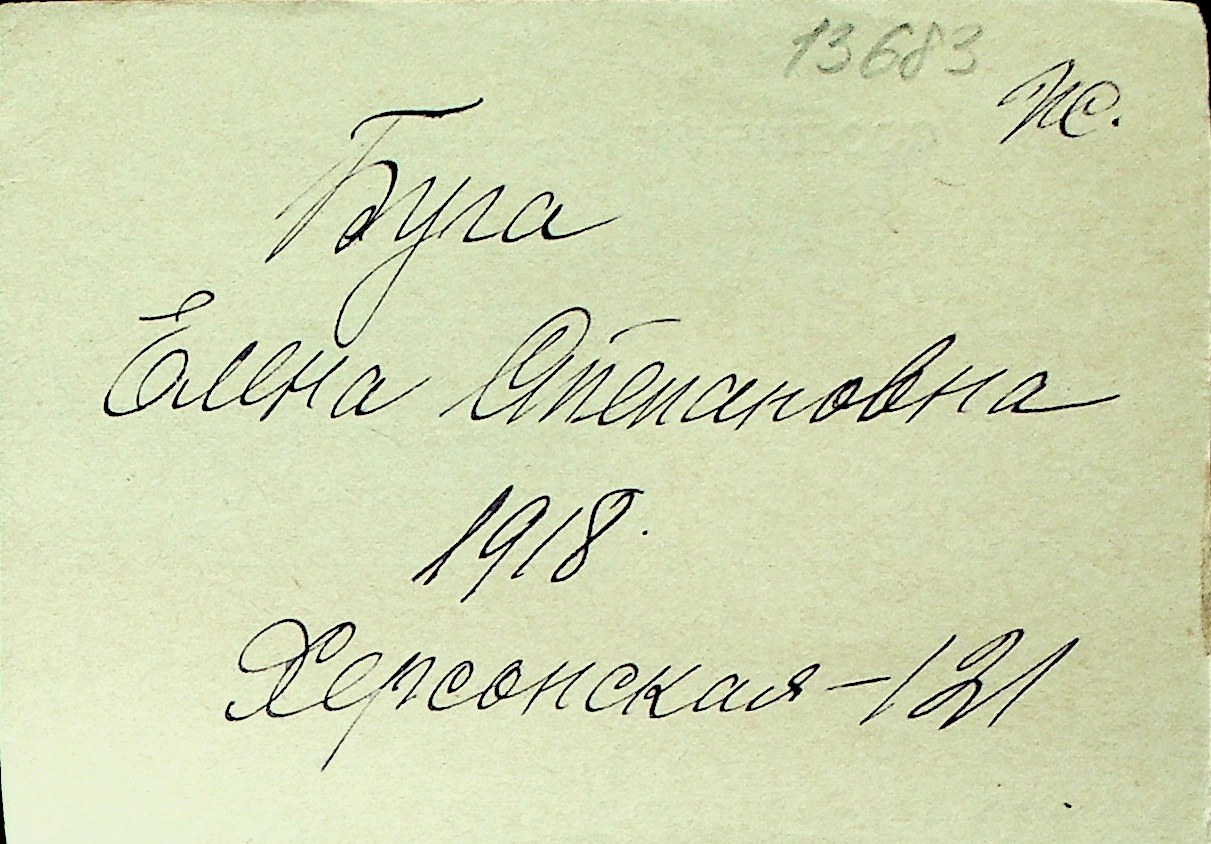 13683
пс.
Буга
Елена Степановна
1918.
Херсонская-121